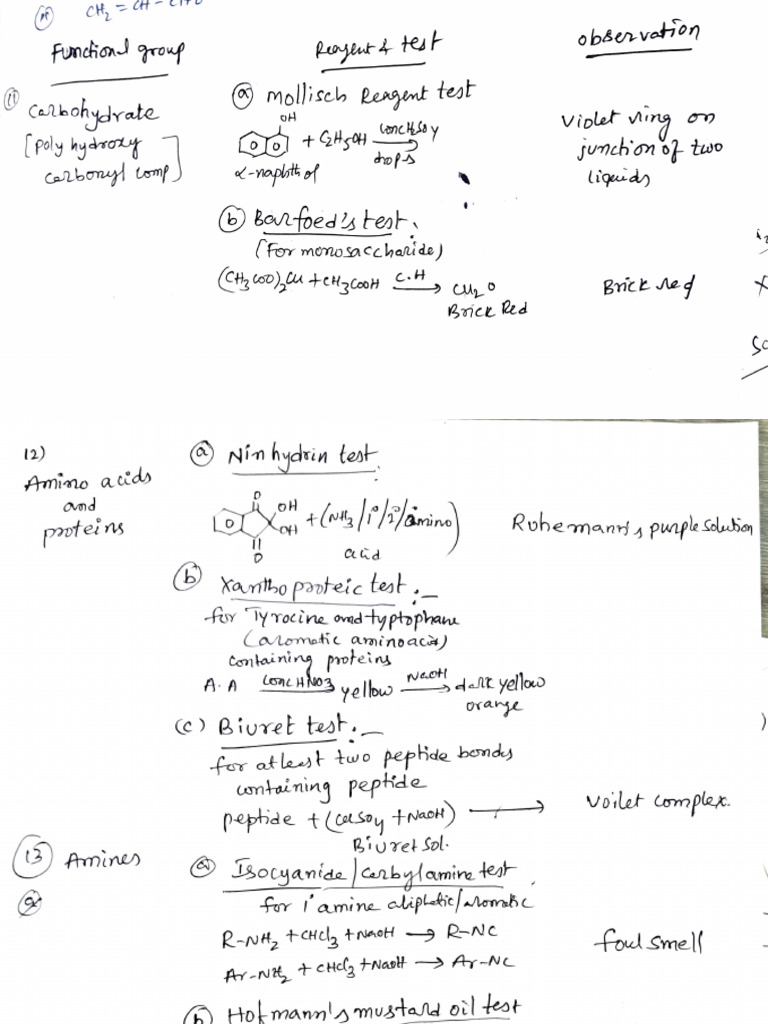 CH2 = CH - CHO
Functional group
Reagent & test
observation
(11) Carbohydrate
[Poly hydroxy
carbonyl comp]
(a) Mollisch Reagent test
OH
+ C2H5OH conc H2SO4
drops
α-naphthol
Violet ring on
junction of two
liquids
(b) Barfoed's test :
(For monosaccharide)
(CH3COO)2Cu + CH3COOH C.H → Cu2O
Brick Red
Brick red
12)
Amino acids
and
proteins
(a) Ninhydrin test :
O
OH
OH
O
+ (NH3/1°/2°/amino)
acid
Ruhemann's purple solution
(b) Xantho proteic test :-
for Tyrocine and typtophane
(aromatic amino acid)
containing proteins
A.A conc HNO3 yellow NaOH → dark yellow
orange
(c) Biuret test :-
for atleast two peptide bonds
containing peptide
peptide + (CuSO4 + NaOH) →
Biuret sol.
Voilet complex.
(13) Amines
(a) Isocyanide/carbylamine test
for 1° amine aliphatic/aromatic
R-NH2 + CHCl3 + NaOH → R-NC
Ar-NH2 + CHCl3 + NaOH → Ar-NC
foul smell
(b) Hofmann's mustard oil test